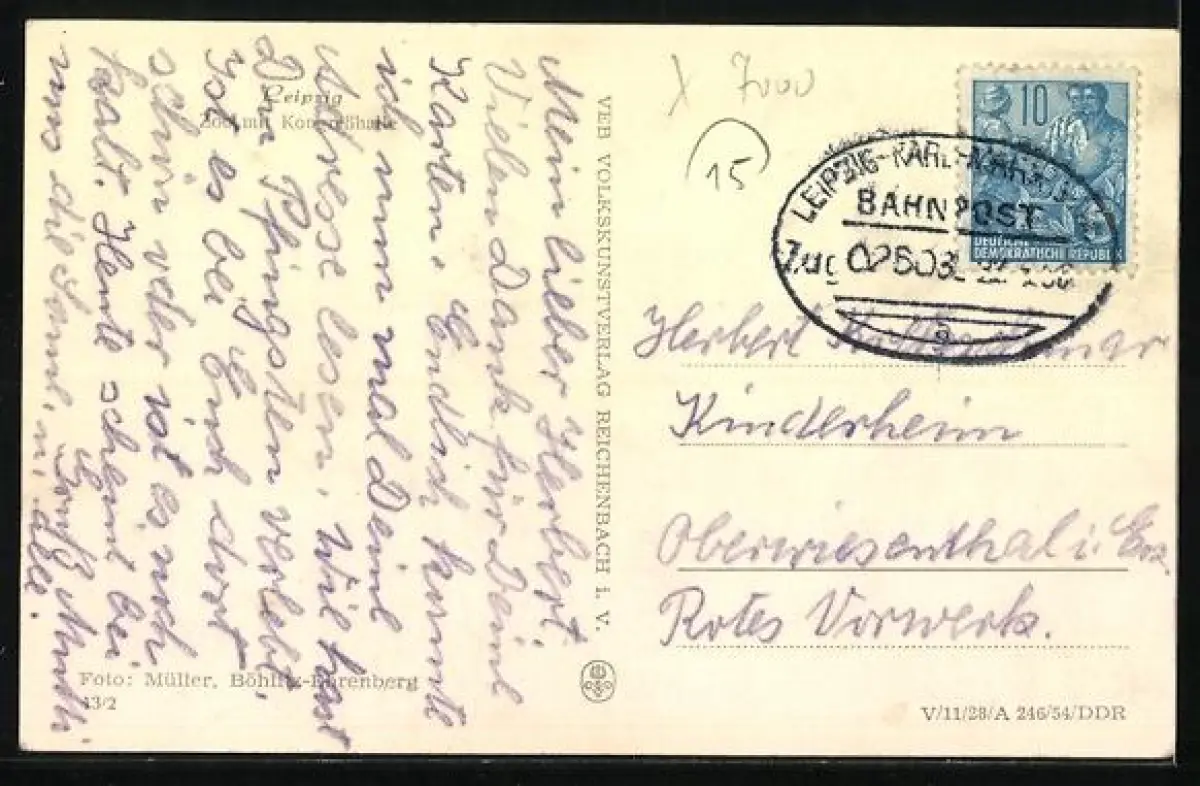 Leipzig
Zoo mit Kongreßhalle
Mein lieber Herbert.
Vielen Dank für Deine
Karten. Endlich konnte
ich nun mal Deine
Adresse lesen. Wie hast
Du Pfingsten verlebt,
ist es bei Euch dort
schön oder ist es noch
kalt. Heute scheint bei
uns die Sonne,
Gruß Mutti
u. alle.
Foto: Müller, Böhlitz-Ehrenberg
43/2
VEB VOLKSKUNSTVERLAG REICHENBACH I. V.
X 7000
15
10
DEUTSCHE
DEMOKRATISCHE REPUBLIK
LEIPZIG-KARL-MARX-
BAHNPOST
Zug
a
Herbert
Kinderheim
Oberwiesenthal i. Erz.
Rotes Vorwerk.
V/11/28/A 246/54/DDR